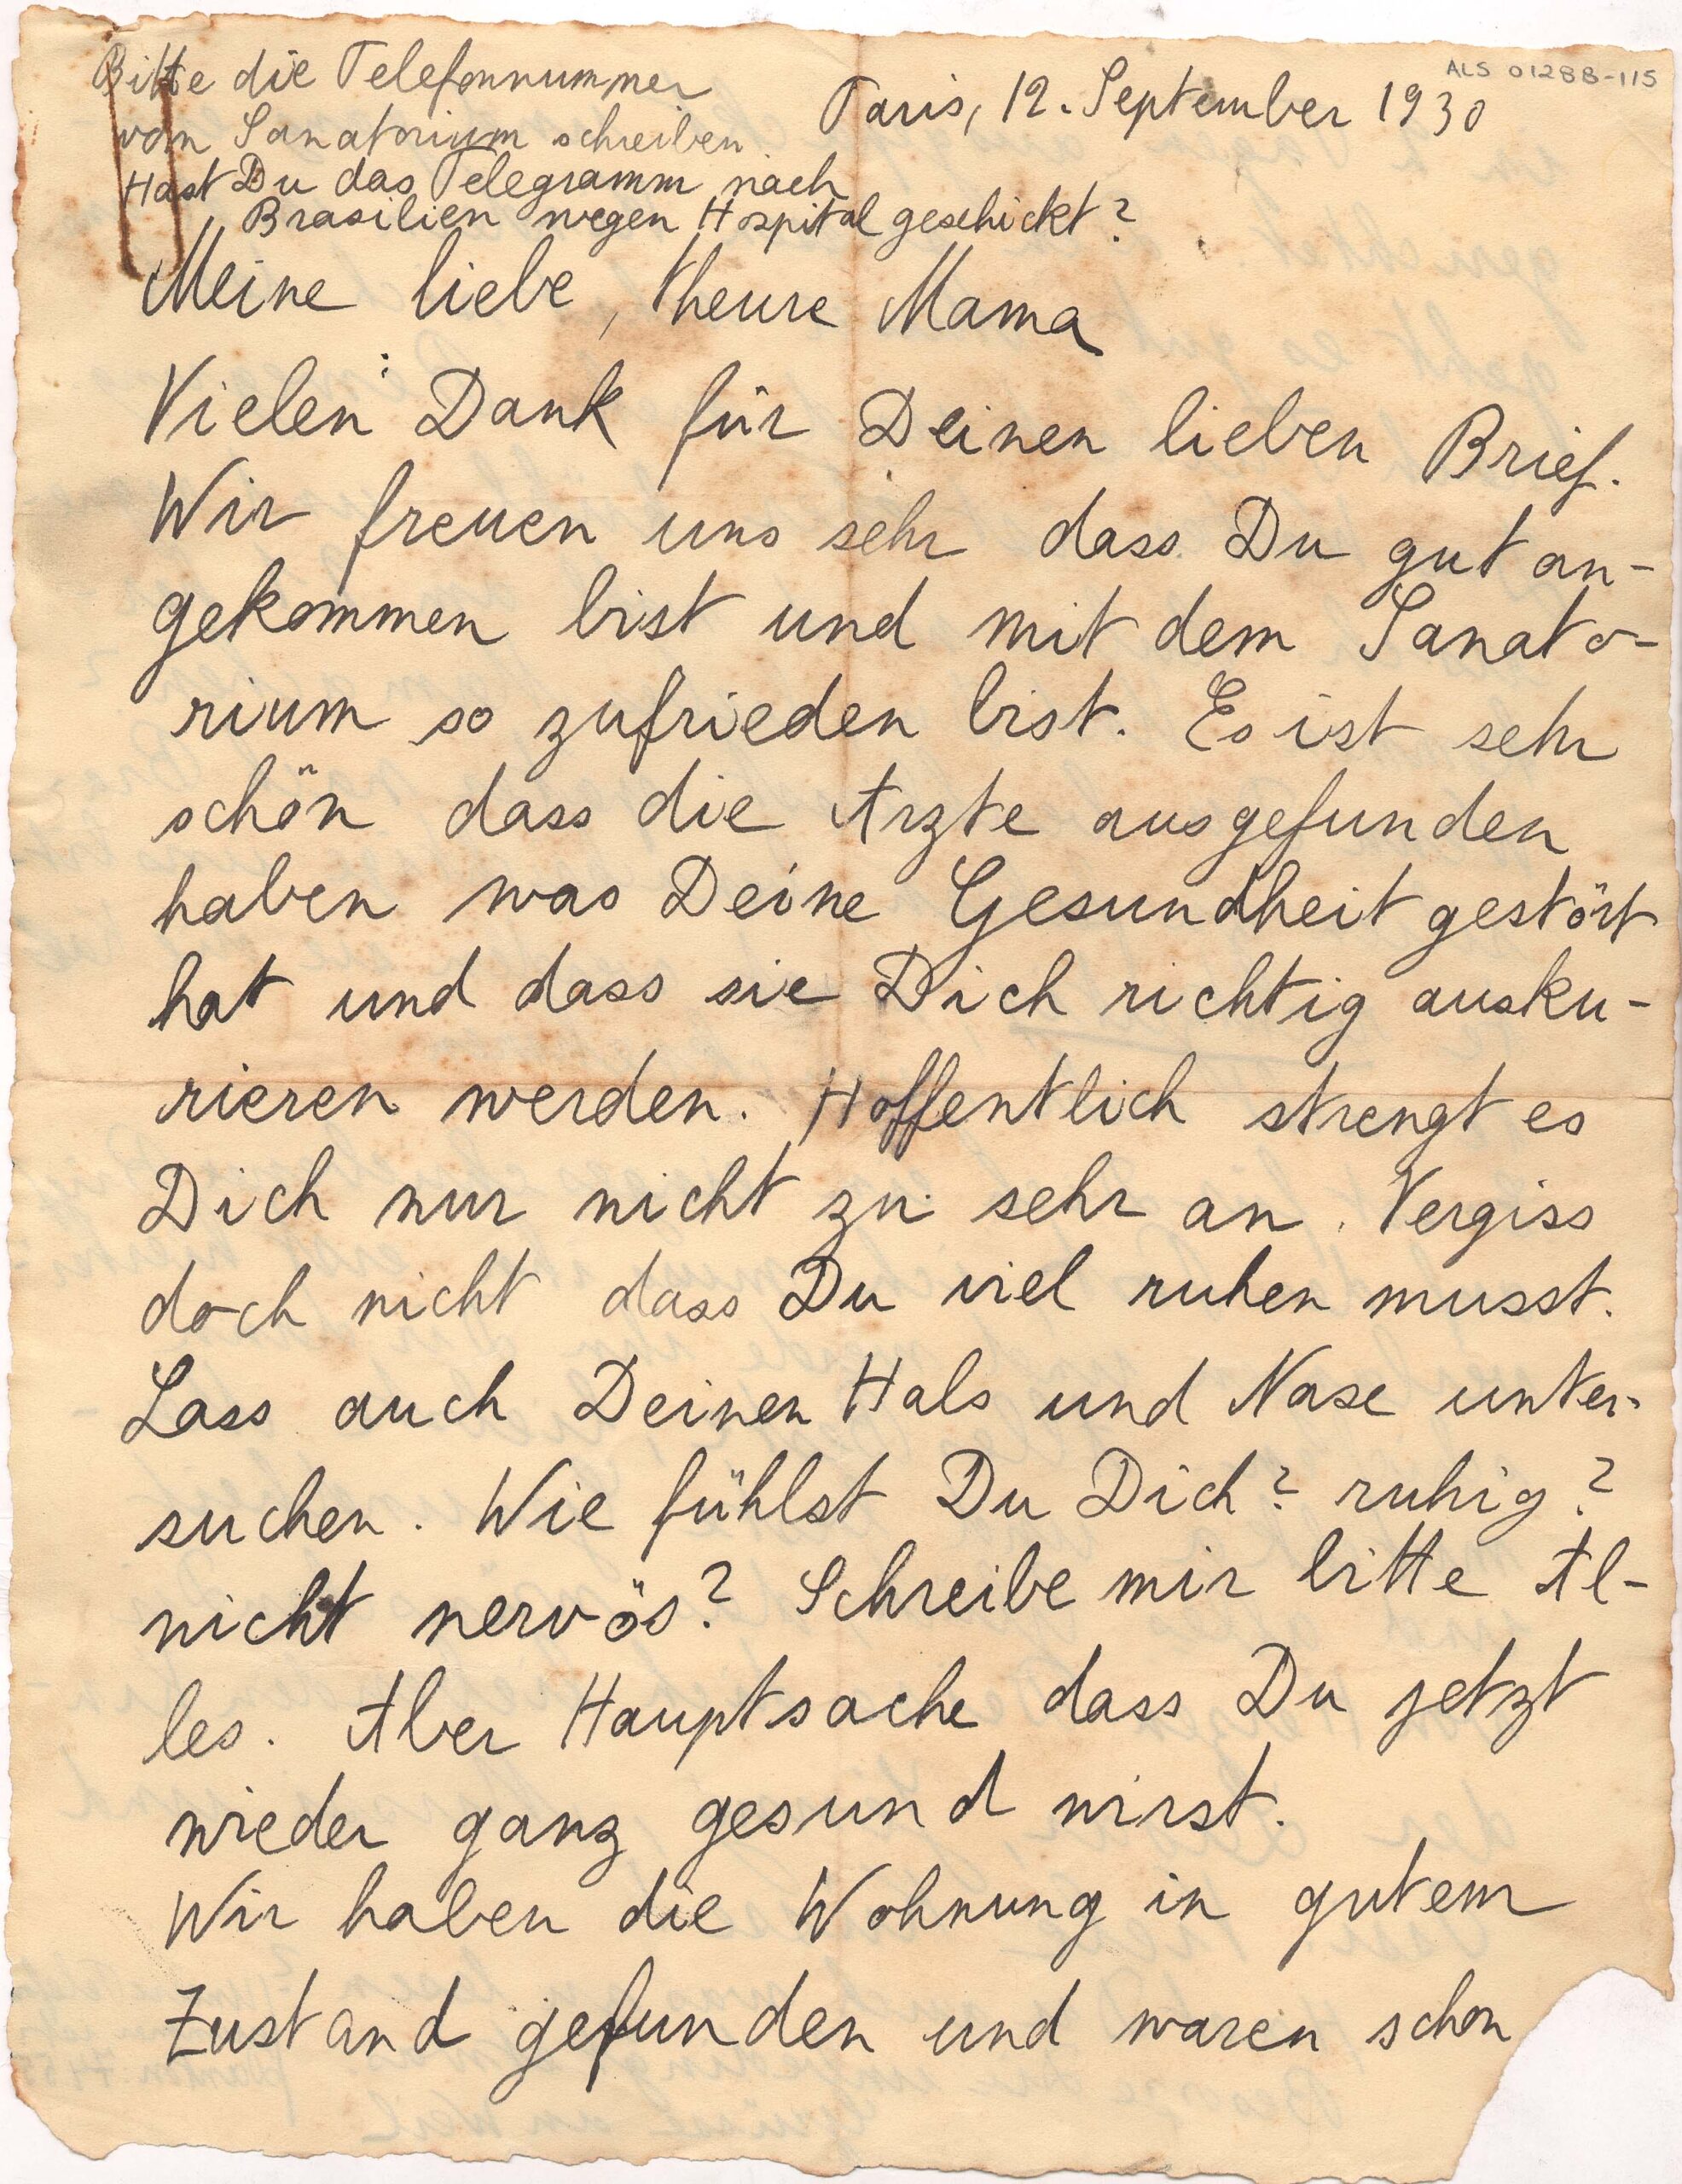 ALS 01288-115
Bitte die Telefonnummer
vom Sanatorium schreiben.
Hast Du das Telegramm nach
Brasilien wegen Hospital geschickt?
Paris, 12. September 1930
Meine liebe, theure Mama
Vielen Dank für Deinen lieben Brief.
Wir freuen uns sehr dass Du gut an-
gekommen bist und mit dem Sanato-
rium so zufrieden bist. Es ist sehr
schön dass die Arzte ausgefunden
haben was Deine Gesundheit gestört
hat und dass sie Dich richtig ausku-
rieren werden. Hoffentlich strengt es
Dich nur nicht zu sehr an. Vergiss
doch nicht dass Du viel ruhen musst.
Lass auch Deinen Hals und Nase unter-
suchen. Wie fühlst Du Dich? ruhig?
nicht nervös? Schreibe mir bitte Al-
les. Aber Hauptsache dass Du jetzt
wieder ganz gesund wirst.
Wir haben die Wohnung in gutem
Zustand gefunden und waren schon